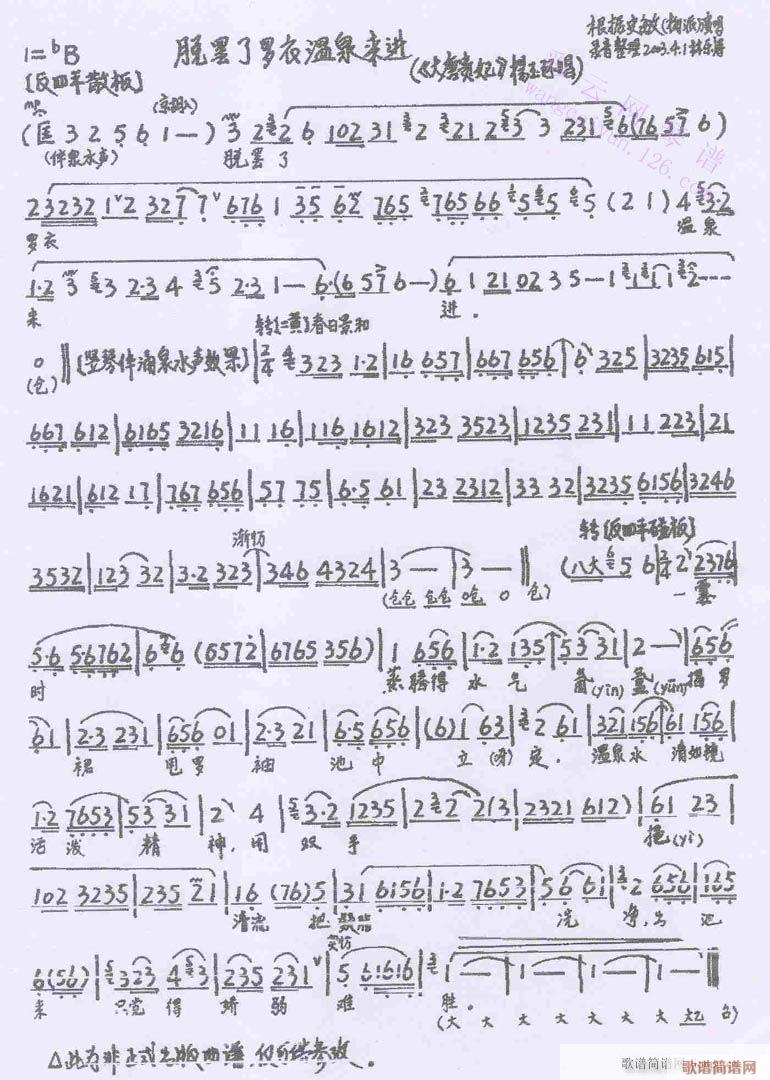 1=♭B
脱罢了罗衣温泉来进
(《大唐贵妃》杨玉环唱)
根据史敏(梅派)演唱
录音整理2003.4.1林乐寿
[反四平散板]
(匡 3 2 5 6 1 —) 3 2 2 6 102 31 2 2 21 2 3 3 231 6(76 57 6)
(伴泉水声) 脱罢了
23232 1 2 2 327 7 676 1 35 62 765 765 66 5 5 5 (2 1) 4 3·2
罗衣 温泉
1·2 3 3 2·3 4 5 2·3 1— 6·(6 57 6—) 6 1 21 02 3 5 — 1 1 1 2---
来 进.
0 ‖[竖琴伴涌泉水声效果]
转[二黄]春日景和
2/4 323 1·2|16 657|667 656|6 325|3235 615|
(仓)
667 612|6165 3216|11 16|116 1612|323 3523|1235 231|11 223|21
1621|612 17|767 656|57 75|6·5 61|23 2312|33 32|3235 6156|3246
转[反四平碰板]
渐慢
3532|123 32|3·2 323|346 4324|3—|3—‖
(仓仓 仓仓 吃 0 仓)
(八大 5 6|2/4 2 2376|
一霎
5·6 56762|6 6 (6572|6765 356)|1 656|1·2 135|53 31|2—|656
时 蒸腾得 水气 氤(yīn) 氲(yūn) 揭罗
61|2·3 231|656 01|2·3 21|6·5 656|(6) 1 63|2 61|321 156|61 156|
裙 甩罗 袖 池中 立(呀)定. 温泉水 清如镜
1·2 7653|53 31|2 4|3·2 1235|2 2 2(3|2321 612)|61 23|
活泼 精 神,用 双手 挹(yì)
102 3235|235 21|16 (76)5|31 6156|1·2 7653|5 6 61|2 656|165
清流 把 洗 净,出 池
6(56)|323 4 3|235 231|5 61616|1—|1—|1—|1—|1—‖
来 只觉得 娇弱 难 胜.
(大 大 大 大 大 大 大 大 大 台)
△此为非正式出版曲谱,仅可供参考.
歌谱简谱网
歌谱简谱网